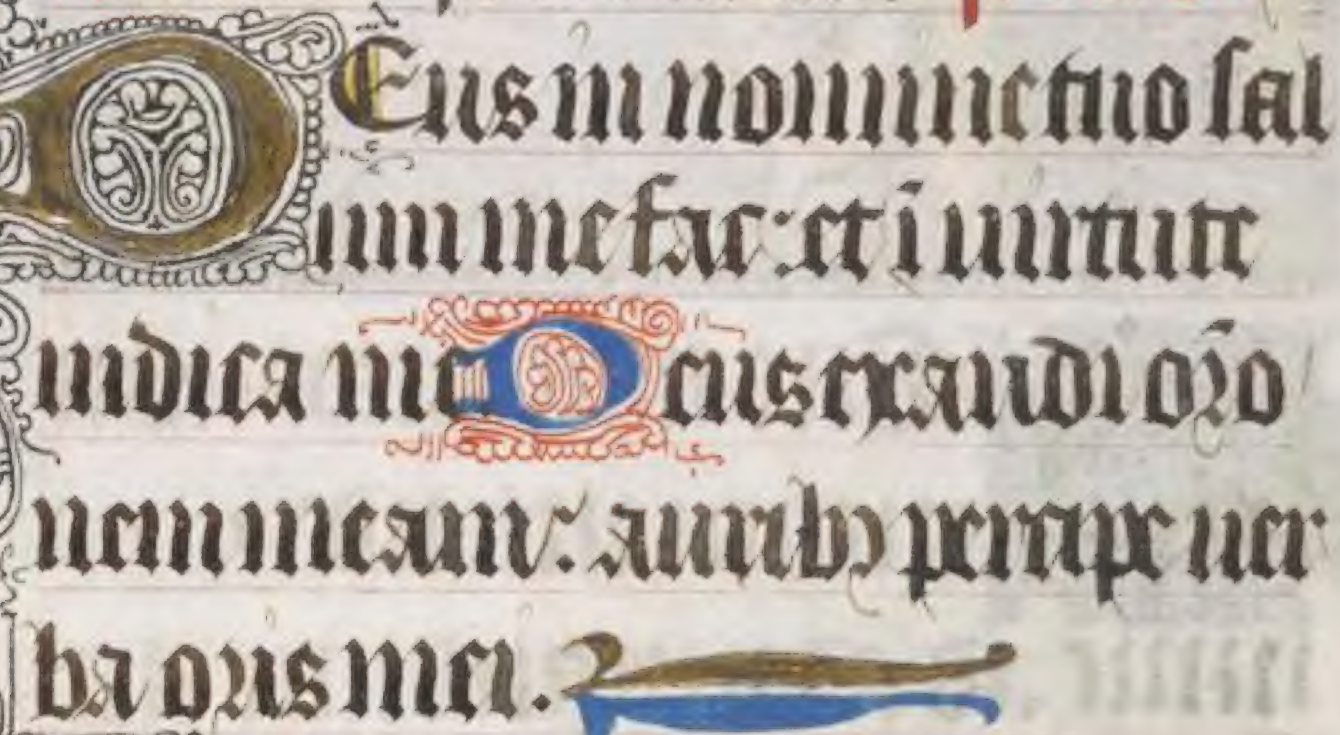 DEus in nomine tuo sal
uum me fac: et ī uirtute
iudica me Deus exaudi or̄o
nem meam: auribꝫ percipe uer
ba oris mei.